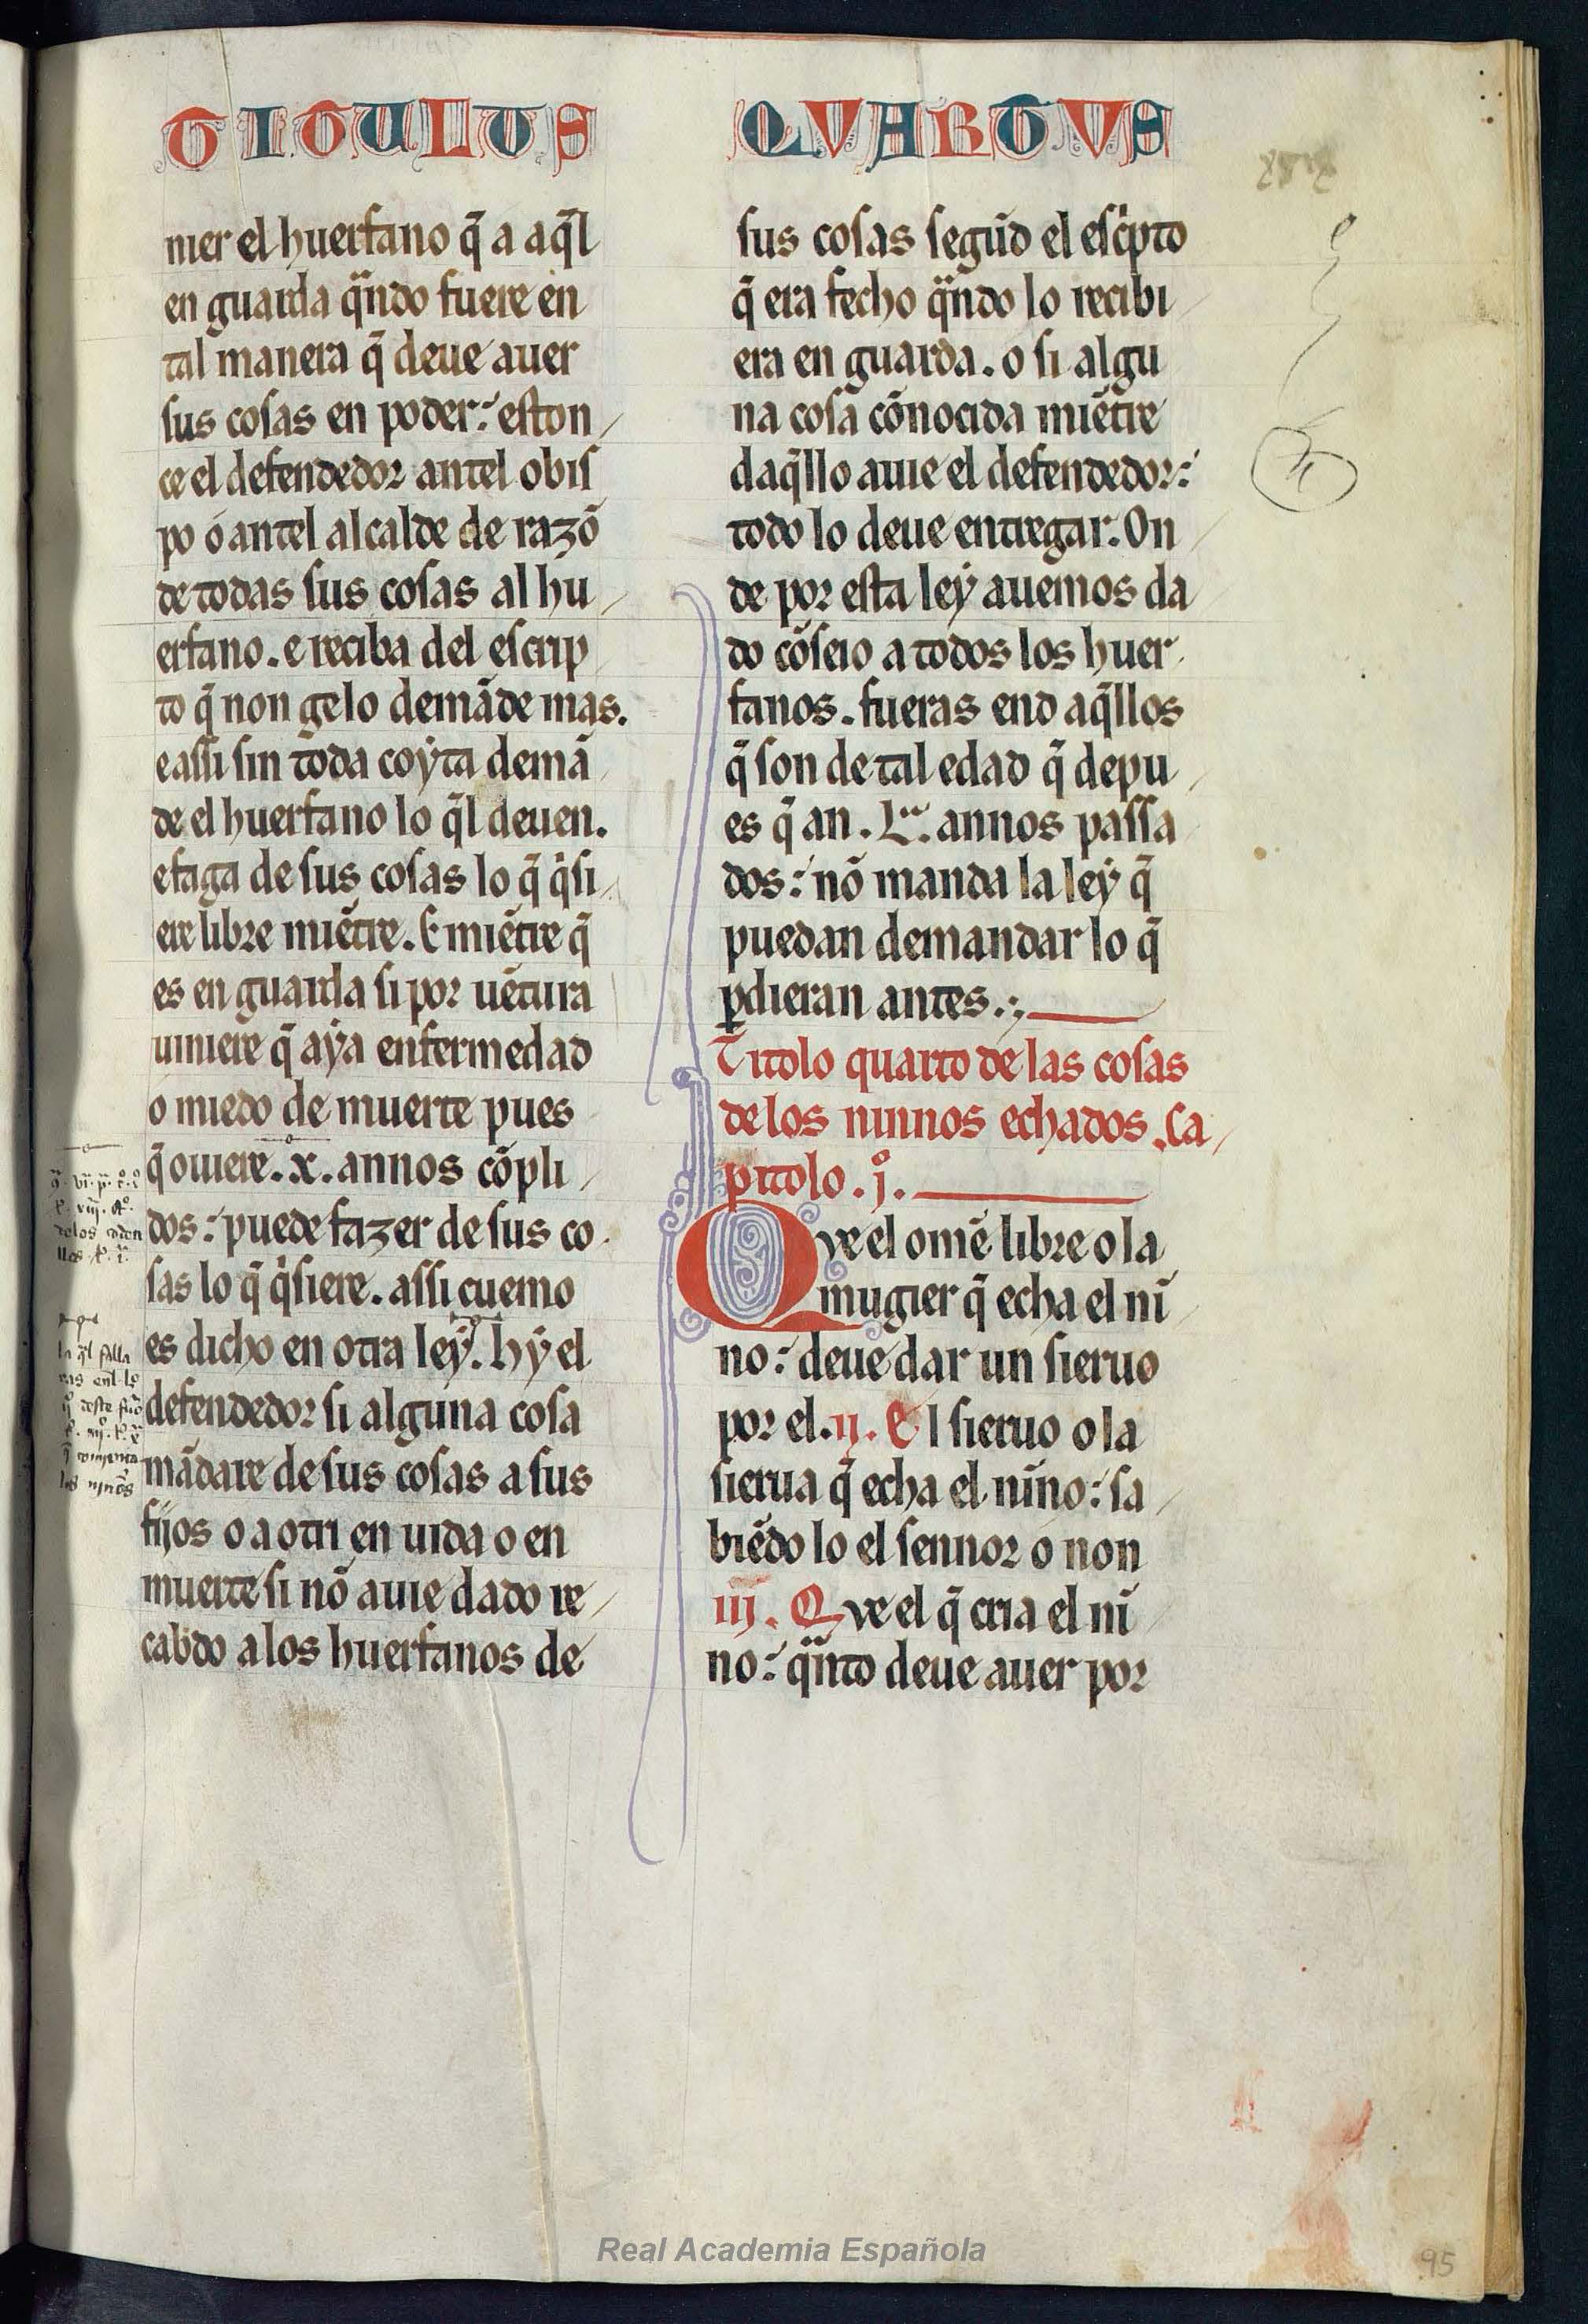 TITULUS QUARTUS
mer el huerfano q̃ a aq̃l
en guarda q̃ndo fuere en
tal manera q̃ deue auer
sus cosas en poder: eston
ce el defendedor antel obis
po o antel alcalde de razõ
de todas sus cosas al hu
erfano. e reciba del escrip
to q̃ non gelo demãde mas.
e assi sin toda coyta demã
de el huerfano lo q̃l deuen.
e faga de sus cosas lo q̃ q̇si
ere libre miẽtre. E miẽtre q̃
es en guarda si por uẽtura
uiniere q̃ aya enfermedad
o miedo de muerte pues
q̃ ouiere .x. annos cõpli
dos: puede fazer de sus co
sas lo q̃ q̇siere. assi cuemo
es dicho en otra ley. hy el
defendedor si alguna cosa
mãdare de sus cosas a sus
fijos o a otri en uida o en
muerte si nõ auie dado re
cabdo a los huerfanos de
sus cosas segũd el esc̍pto
q̃ era fecho q̃ndo lo recibi
era en guarda. o si algu
na cosa cõnocida miẽtre
daq̃llo auie el defendedor:
todo lo deue entregar. On
de por esta ley auemos da
do cõseio a todos los huer
fanos. fueras end aq̃llos
q̃ son de tal edad q̃ depu
es q̃ an . L. annos passa
dos: nõ manda la ley q̃
puedan demandar lo q̃
ꝑdieran antes.
Titolo quarto de las cosas
de los ninnos echados. Ca
pitolo .jº.
Que el omẽ libre o la
mugier q̃ echa el nĩ
no: deue dar un sieruo
por el. ij. El sieruo o la
sierua q̃ echa el nĩno: sa
biẽdo lo el sennor o non
iij. Que el q̃ cria el nĩ
no: q̃nto deue auer por
95
Real Academia Española